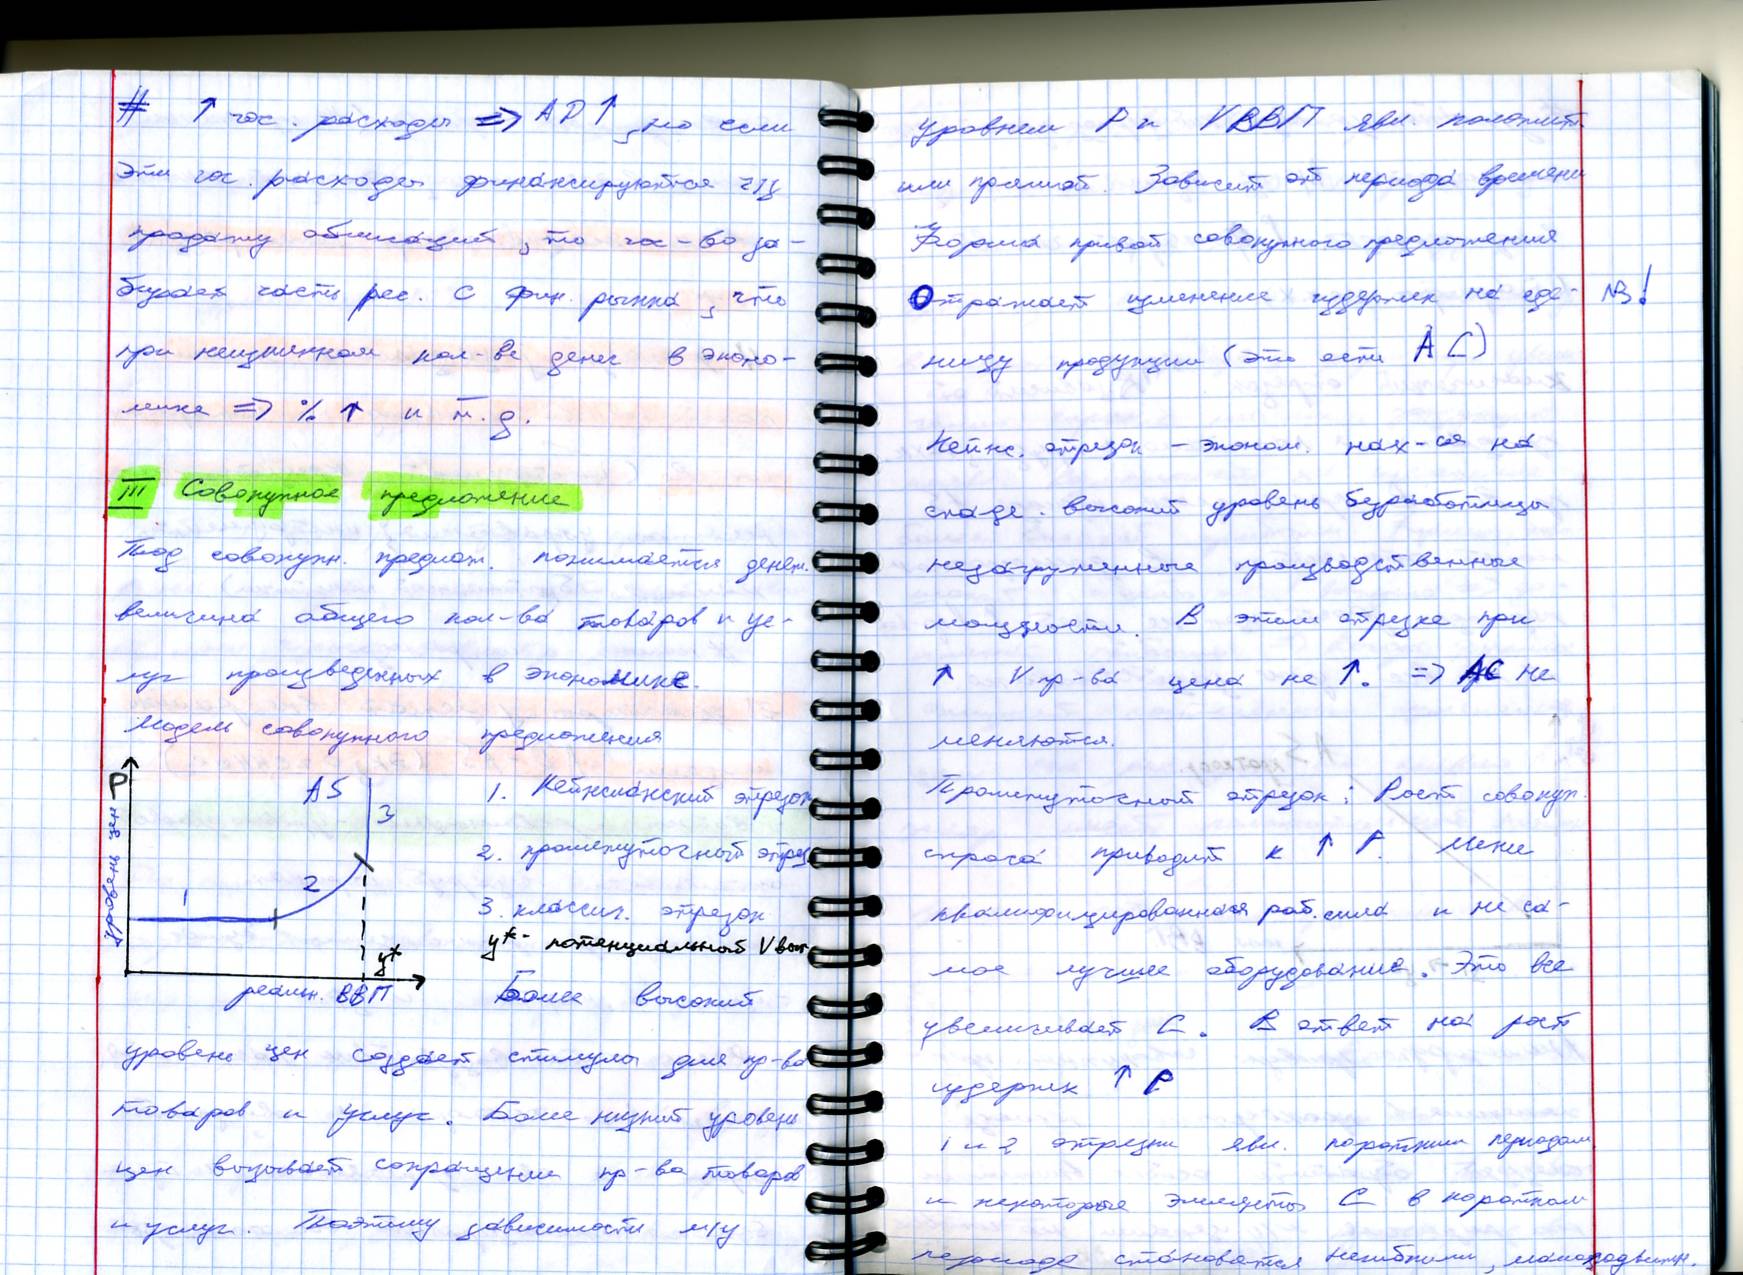 # ↑ гос. расходы => AD↑, но если
эти гос. расходы финансируются ч/з
продажу облигаций, то гос-во за-
бирает часть рес. с фин. рынка, что
при неизменном кол-ве денег в эконо-
мике => % ↑ и т.д.
III Совокупное предложение
Под совокупн. предлож. понимается денеж.
величина общего кол-ва товаров и ус-
луг произведенных в экономике.
Модель совокупного предложения
P
уровень цен
AS
1
2
3
y*
реальн. ВВП
1. Кейнсианский отрезок
2. промежуточный отрез
3. классич. отрезок
y* - потенциальный V вып.
Более высокий
уровень цен создает стимулы для пр-ва
товаров и услуг. Более низкий уровень
цен вызывает сокращение пр-ва товаров
и услуг. Поэтому зависимость м/у
уровнем P и VВВП явл. положит.
или прямой. Зависит от периода времени
Форма кривой совокупного предложения
Отражает изменение издержек на еде- NB!
ницу продукции (это есть AC)
Кейнс. отрезок - эконом. нах-ся на
спаде. высокий уровень безработицы
незагруженные производственные
мощности. В этом отрезке при
↑ V пр-ва цена не ↑. => AC не
меняются.
Промежуточный отрезок: Рост совокуп.
спроса приводит к ↑ P. Менее
квалифицированная раб. сила и не са-
мое лучшее оборудование. Это все
увеличивает C. В ответ на рост
издержек ↑ P
1 и 2 отрезки явл. коротким периодом
и некоторые элементы C в коротком
периоде становятся негибкими, малоподвижн.